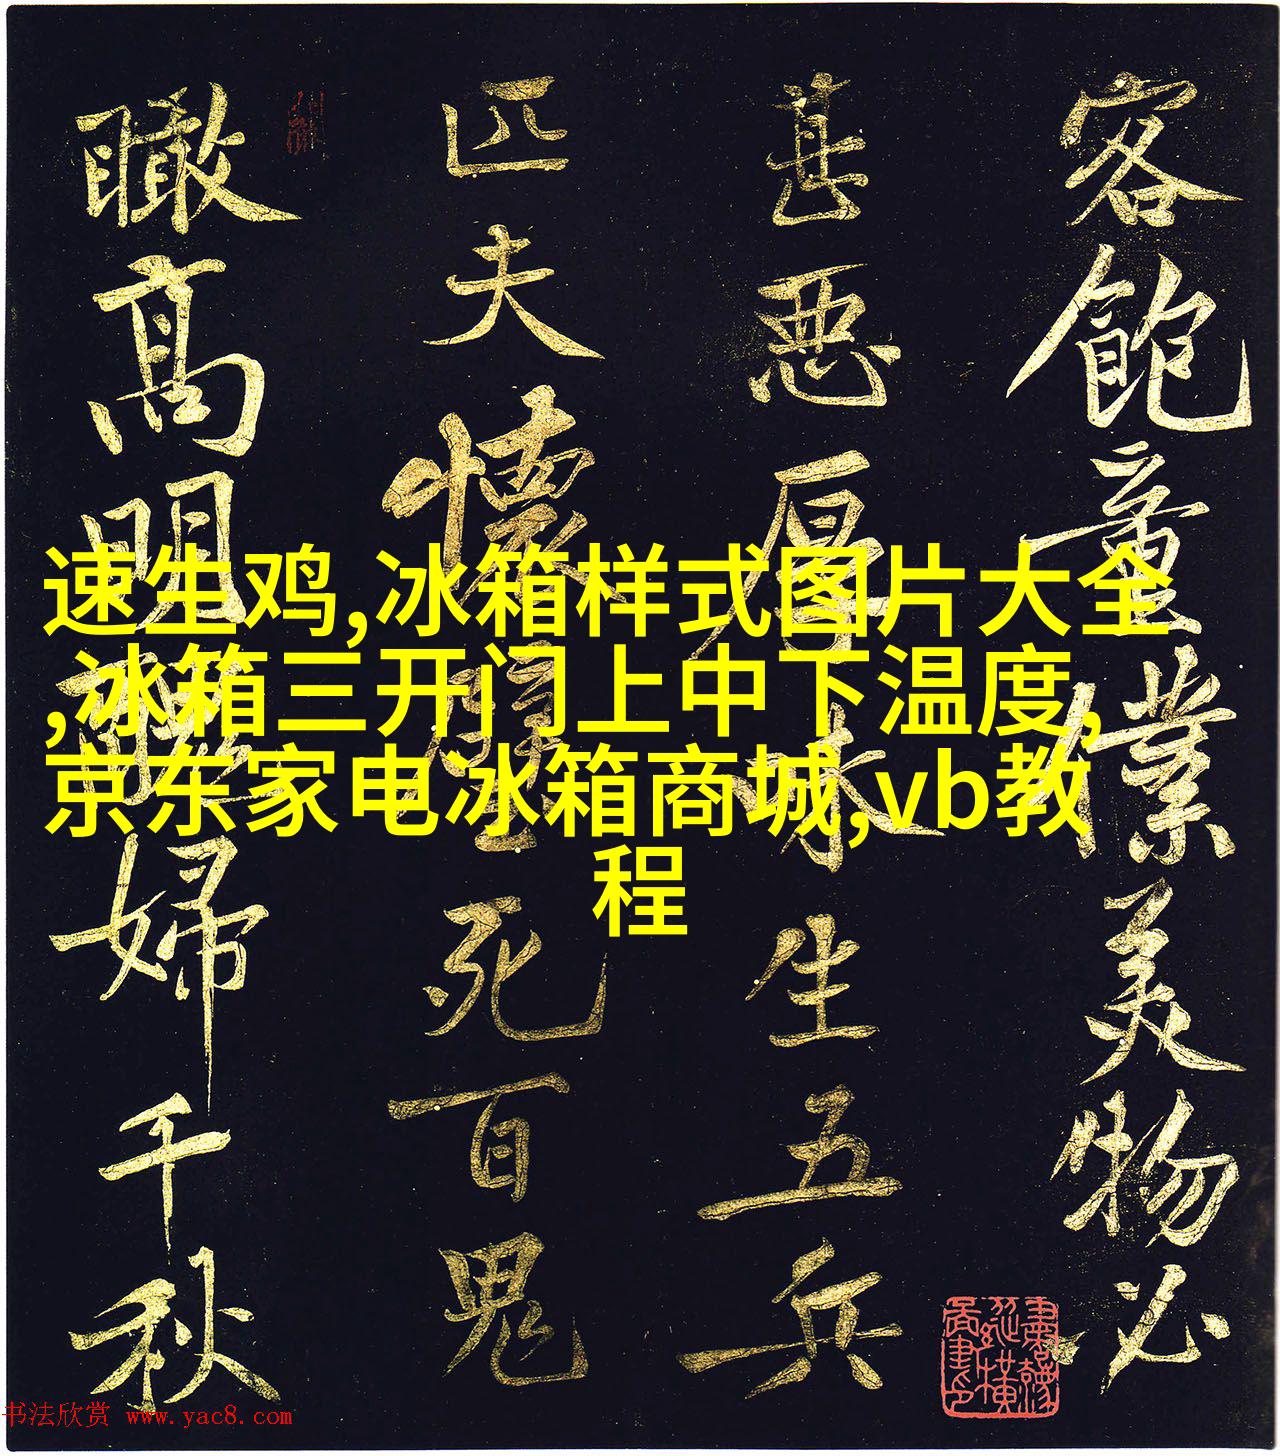 速生鸡,冰箱样式图片大全
,冰箱三开门上中下温度,
京东家电冰箱商城,vb教
程
客飽童僕美物必
甚惡厚味生五兵
匹夫懷璧死百鬼
瞰高明醜婦千秋
书法欣赏 www.yac8.com